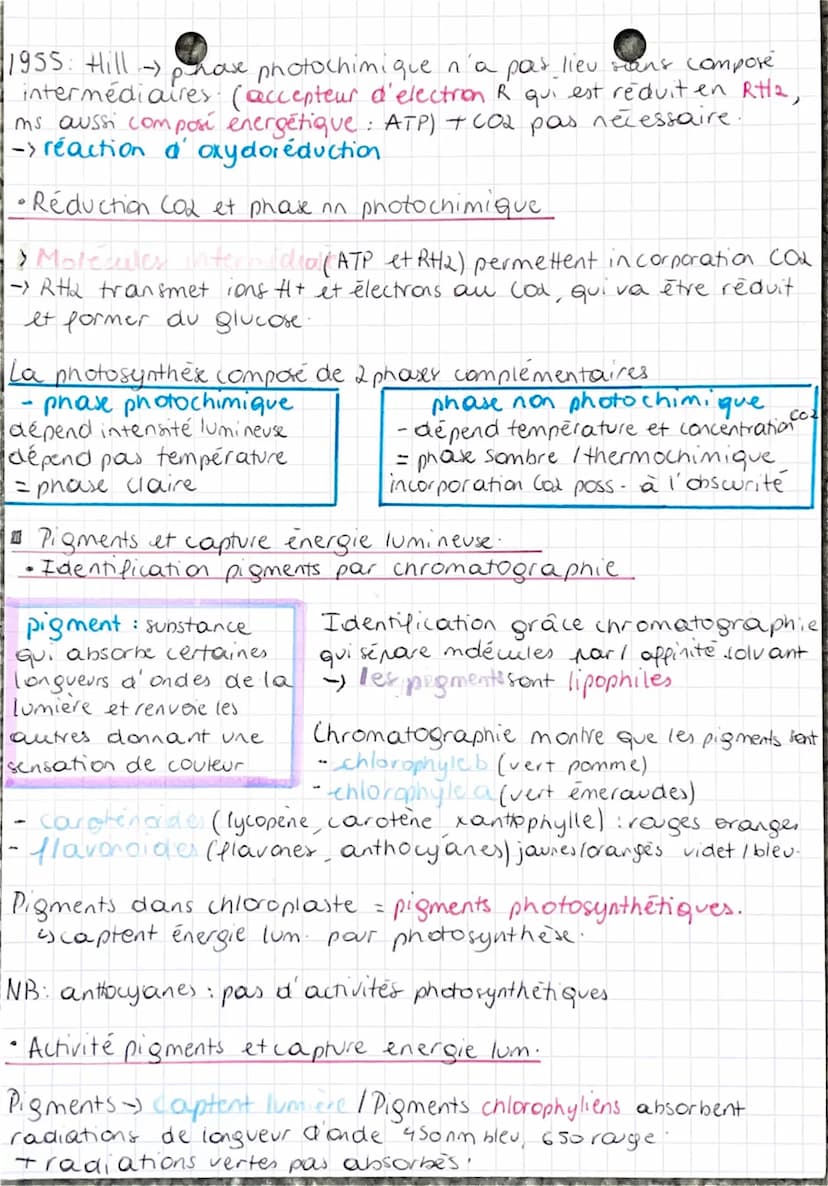 1955: Hill -> phase photochimique n'a pas lieu sans composé
intermédiaires. (accepteur d'electron R qui est réduit en RH2,
ms aussi composé énergétique : ATP) + CO2 pas nécessaire.
-> réaction d'oxydoréduction
• Réduction CO2 et phase nn photochimique
> Molécules intermédiair (ATP et RH2) permettent incorporation CO2
-> RH2 transmet ions H+ et électrons au CO2, qui va être réduit
et former du glucose.
La photosynthèse composé de 2 phases complémentaires
- phase photochimique
dépend intensité lumineuse
dépend pas température
= phase claire
phase non photochimique
- dépend température et concentration CO2
= phase sombre / thermochimique
incorporation CO2 poss. à l'obscurité
Pigments et capture énergie lumineuse.
• Identification pigments par chromatographie
pigment : substance
qui absorbe certaines
longueurs d'ondes de la
lumière et renvoie les
autres donnant une
sensation de couleur
Identification grâce chromatographie
qui sépare molécules par/ affinité solvant
-> les pigments sont lipophiles
Chromatographie montre que les pigments sont
- chlorophyle b (vert pomme)
- chlorophyle a (vert émeraudes)
- caroténoïdes (lycopène, carotène, xanthophylle) : rouges oranges
- flavonoïdes (flavones, anthocyanes) jaunes/orangés videt / bleu.
Pigments dans chloroplaste = pigments photosynthétiques.
↳ captent énergie lum. pour photosynthèse.
NB: anthocyanes : pas d'activités photosynthétiques
• Activité pigments et capture energie lum.
Pigments -> captent lumière / Pigments chlorophyliens absorbent
radiations de longueur d'onde 450nm bleu, 650 rouge.
+ radiations vertes pas absorbés.